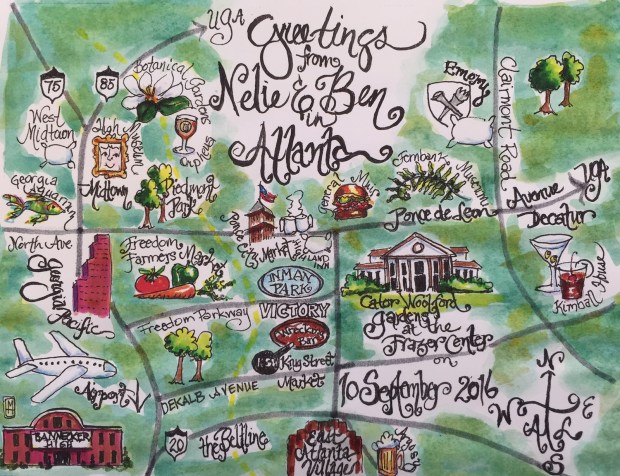 UGA
Greetings
from
Nelie & Ben
in
Atlanta
75
85
Botanical Gardens
West
Midtown
High Museum
Midtown
Orpheus
Emory
Clairmont Road
Georgia
Aquarium
Piedmont
Park
Ponce City Market
General Muir
Fernbank Museum
Ponce de Leon
Avenue
UGA
Decatur
North Ave
Georgia Pacific
Freedom
Farmers Market
HIGHLAND
INN
INMAN
PARK
VICTORY
Wrecking
Bar
Krog Street
Market
Freedom Parkway
Cator Woolford
Gardens
at the
Frazer Center
on
10 September 2016
Kimball House
Airport
DEKALB AVENUE
20
the Beltline
East
Atlanta
Village
Argosy
N
W
E
S